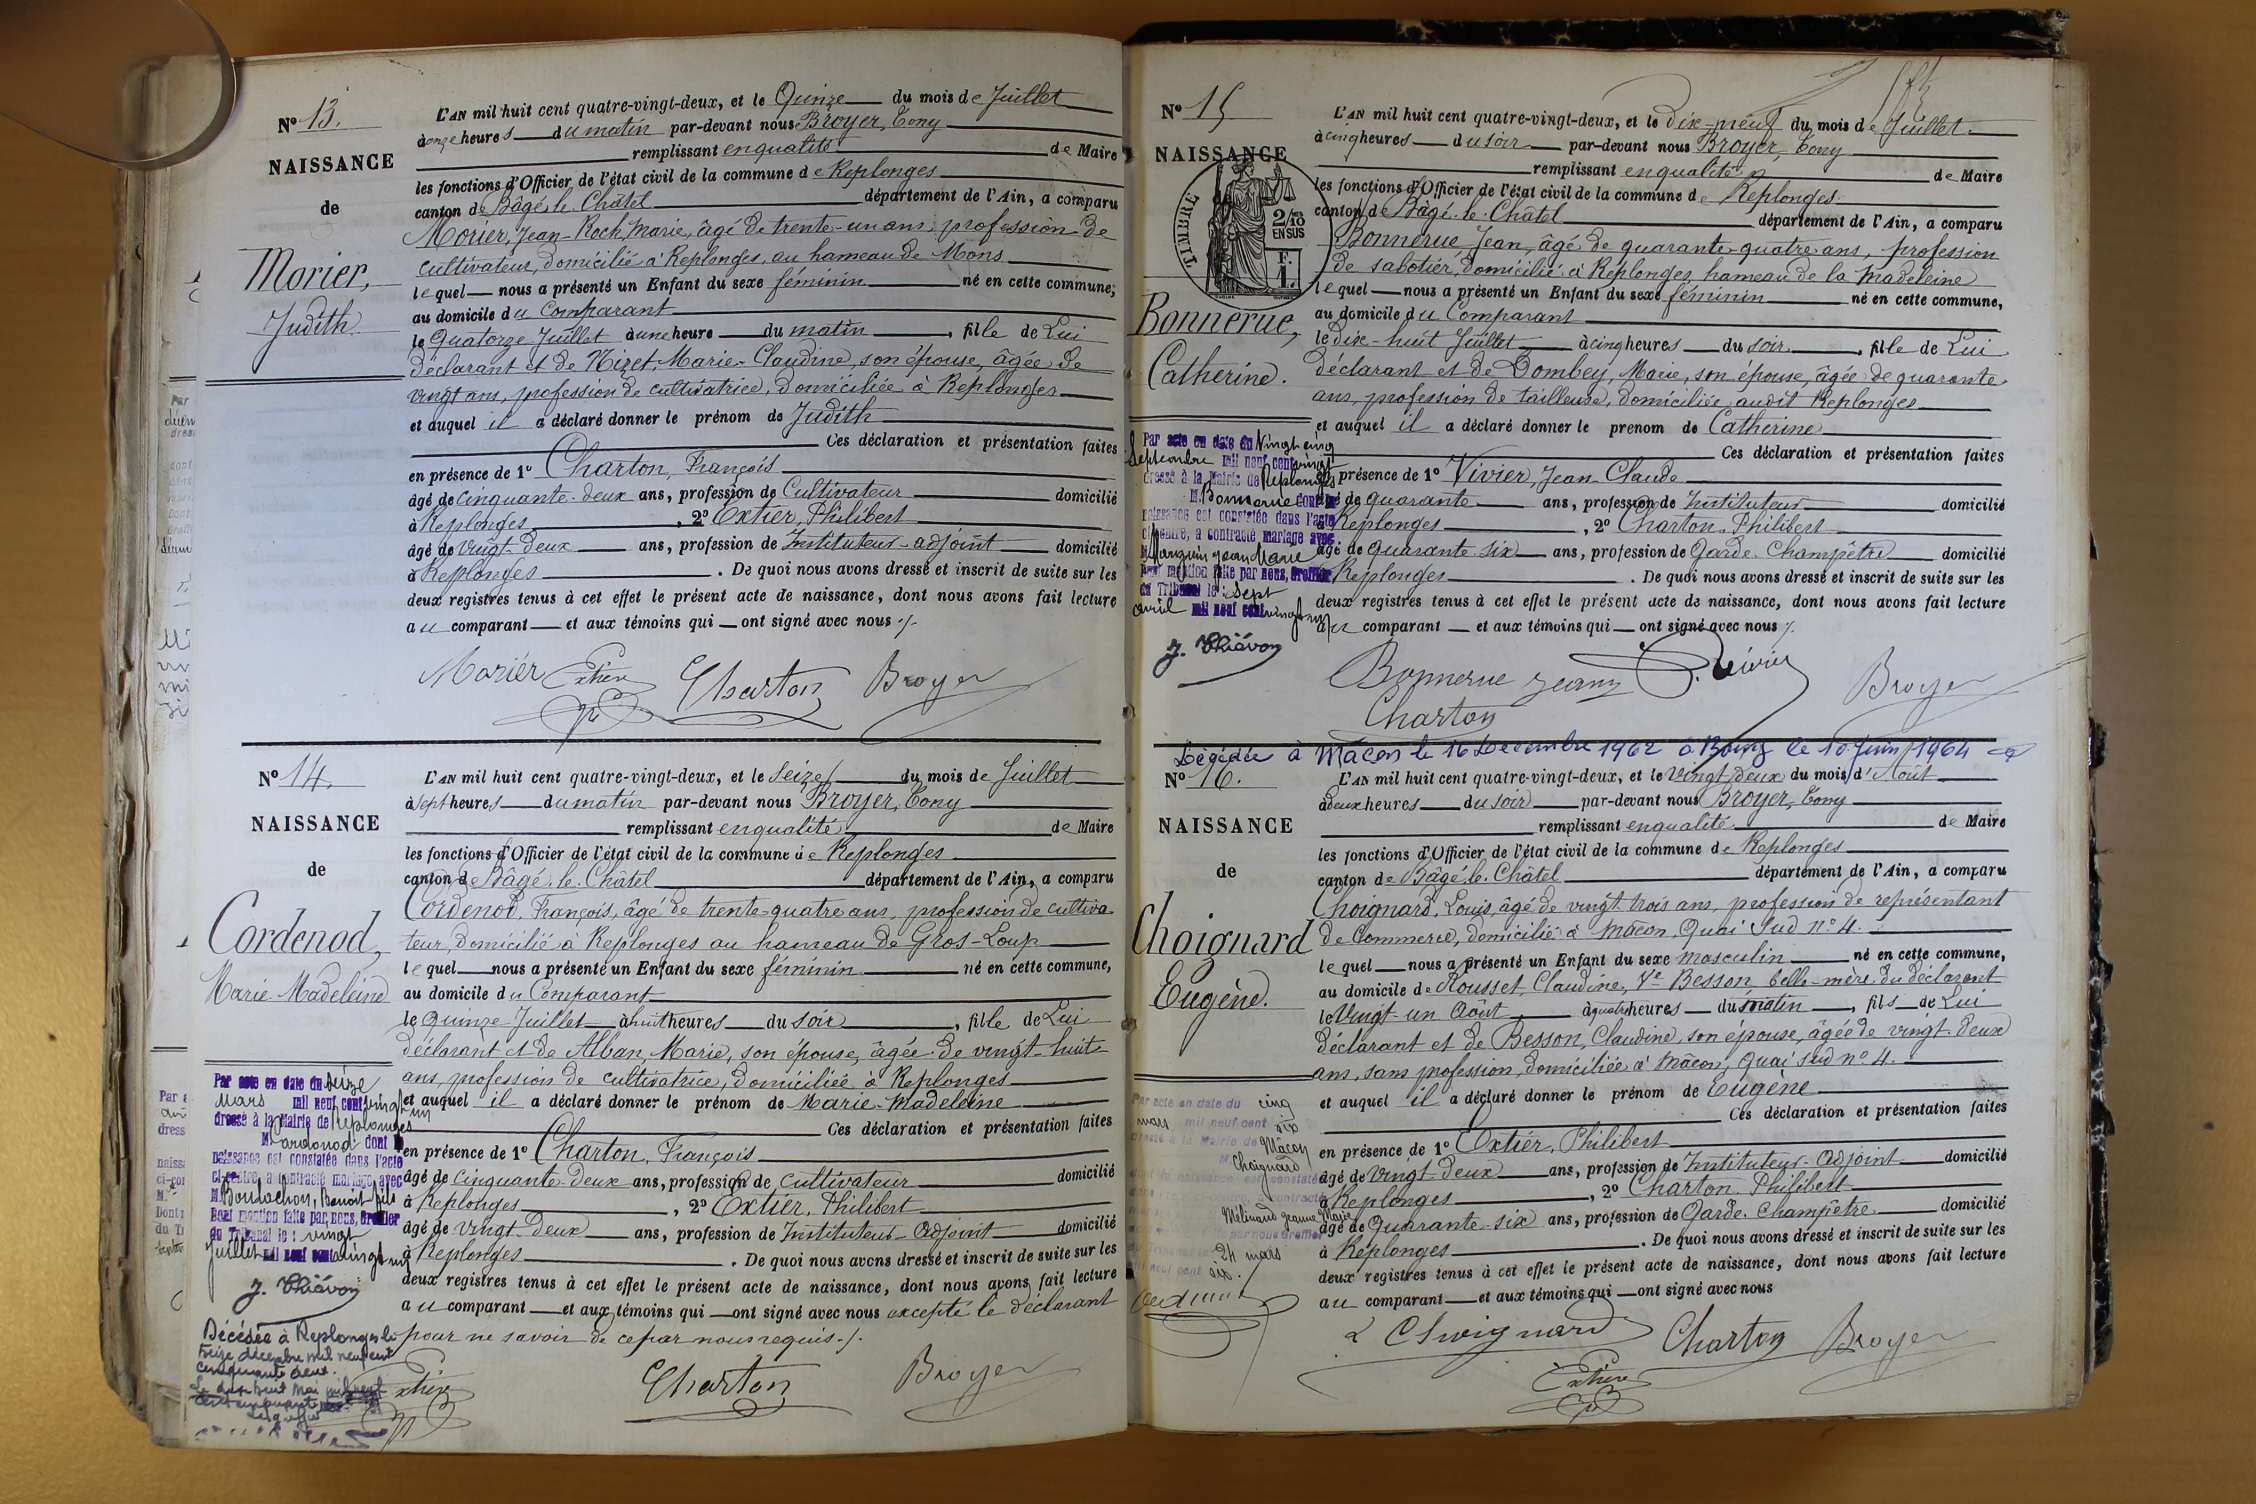 N° 13.
NAISSANCE
de
Morier,
Judith
L'AN mil huit cent quatre-vingt-deux, et le Quinze du mois de Juillet
à onze heures du matin par-devant nous Broyer, Tony
remplissant en qualité de Maire
les fonctions d'Officier de l'état civil de la commune de Replonges
canton de Bâgé-le-Châtel département de l'Ain, a comparu
Morier, Jean-Roch Marie, âgé de trente-un ans, profession de
cultivateur, domicilié à Replonges, au hameau de Mons
lequel nous a présenté un Enfant du sexe féminin né en cette commune,
au domicile du Comparant
le Quatorze Juillet à une heure du matin, fille de Lui
déclarant et de Nizet, Marie-Claudine, son épouse, âgée de
vingt ans, profession de cultivatrice, domiciliée à Replonges
et auquel il a déclaré donner le prénom de Judith
Ces déclaration et présentation faites
en présence de 1° Charton, François
âgé de cinquante-deux ans, profession de Cultivateur domicilié
à Replonges, 2° Extier, Philibert
âgé de vingt-deux ans, profession de Instituteur-adjoint domicilié
à Replonges. De quoi nous avons dressé et inscrit de suite sur les
deux registres tenus à cet effet le présent acte de naissance, dont nous avons fait lecture
au comparant et aux témoins qui ont signé avec nous ./.
Morier Extier Charton Broyer
N° 14.
NAISSANCE
de
Cordenod,
Marie-Madeleine
L'AN mil huit cent quatre-vingt-deux, et le Seize du mois de Juillet
à sept heures du matin par-devant nous Broyer, Tony
remplissant en qualité de Maire
les fonctions d'Officier de l'état civil de la commune de Replonges
canton de Bâgé-le-Châtel département de l'Ain, a comparu
Cordenod, François, âgé de trente-quatre ans, profession de cultiva-
teur, domicilié à Replonges au hameau de Gros-Loup
lequel nous a présenté un Enfant du sexe féminin né en cette commune,
au domicile du Comparant
le quinze Juillet à huit heures du soir, fille de Lui
déclarant et de Alban, Marie, son épouse, âgée de vingt-huit
ans, profession de cultivatrice, domiciliée à Replonges
et auquel il a déclaré donner le prénom de Marie-Madeleine
Ces déclaration et présentation faites
en présence de 1° Charton, François
âgé de cinquante-deux ans, profession de cultivateur domicilié
à Replonges, 2° Extier, Philibert
âgé de vingt-deux ans, profession de Instituteur-Adjoint domicilié
à Replonges. De quoi nous avons dressé et inscrit de suite sur les
deux registres tenus à cet effet le présent acte de naissance, dont nous avons fait lecture
au comparant et aux témoins qui ont signé avec nous excepté le déclarant
pour ne savoir de ce par nous requis ./.
Extier Charton Broyer
Par acte en date du seize
mars mil neuf cent vingt un
dressé à la Mairie de Replonges
M Cordenod dont la
naissance est constatée dans l'acte
ci-contre, a contracté mariage avec
M Bourlachon, Benoît fils
Dont mention faite par nous, Greffier
du Tribunal le : vingt
Juillet mil neuf cent vingt un
J. Thiévon
Décédée à Replonges le
treize décembre mil neuf cent
cinquante deux.
Le dix huit mai
N° 15
NAISSANCE
TIMBRE
2/10 EN SUS
F. 1.
Bonnerue,
Catherine.
L'AN mil huit cent quatre-vingt-deux, et le dix-neuf du mois de Juillet
à cinq heures du soir par-devant nous Broyer, Tony
remplissant en qualité de Maire
les fonctions d'Officier de l'état civil de la commune de Replonges
canton de Bâgé-le-Châtel département de l'Ain, a comparu
Bonnerue, Jean, âgé de quarante-quatre ans, profession
de sabotier, domicilié à Replonges, hameau de la Madeleine
lequel nous a présenté un Enfant du sexe féminin né en cette commune,
au domicile du Comparant
le dix-huit Juillet à cinq heures du soir, fille de Lui
déclarant et de Dombey, Marie, son épouse, âgée de quarante
ans, profession de tailleuse, domiciliée audit Replonges
et auquel il a déclaré donner le prenom de Catherine
Ces déclaration et présentation faites
en présence de 1° Vivier, Jean-Claude
âgé de quarante ans, profession de Instituteur domicilié
à Replonges, 2° Charton, Philibert
âgé de quarante-six ans, profession de Garde-Champêtre domicilié
à Replonges. De quoi nous avons dressé et inscrit de suite sur les
deux registres tenus à cet effet le présent acte de naissance, dont nous avons fait lecture
au comparant et aux témoins qui ont signé avec nous ./.
Bonnerue Jean Vivier Broyer
Charton
Par acte en date du Vingt cinq
Septembre mil neuf cent vingt
dressé à la Mairie de Replonges
M Bonnerue dont la
naissance est constatée dans l'acte
ci-contre, a contracté mariage avec
M Manguin Jean Marie
Dont mention faite par nous, Greffier
du Tribunal le : Sept
avril mil neuf cent vingt un
J. Thiévon
Décédée à Mâcon le 16 Decembre 1962 à Bourg le 10 Juin 1964
N° 16.
NAISSANCE
de
Choignard
Eugène.
L'AN mil huit cent quatre-vingt-deux, et le vingt-deux du mois d'Août
à deux heures du soir par-devant nous Broyer, Tony
remplissant en qualité de Maire
les fonctions d'Officier de l'état civil de la commune de Replonges
canton de Bâgé-le-Châtel département de l'Ain, a comparu
Choignard, Louis, âgé de vingt-trois ans, profession de représentant
de Commerce, domicilié à Mâcon, Quai Sud n° 4.
lequel nous a présenté un Enfant du sexe masculin né en cette commune,
au domicile de Rousset, Claudine, Ve Besson, belle-mère du déclarant
le Vingt-un Août à quatre heures du matin, fils de Lui
déclarant et de Besson, Claudine, son épouse, âgée de vingt-deux
ans, sans profession, domiciliée à Mâcon, Quai sud n° 4.
et auquel il a déclaré donner le prénom de Eugène
Ces déclaration et présentation faites
en présence de 1° Extier, Philibert
âgé de vingt-deux ans, profession de Instituteur-Adjoint domicilié
à Replonges, 2° Charton, Philibert
âgé de quarante-six ans, profession de Garde-Champêtre domicilié
à Replonges. De quoi nous avons dressé et inscrit de suite sur les
deux registres tenus à cet effet le présent acte de naissance, dont nous avons fait lecture
au comparant et aux témoins qui ont signé avec nous
L Choignard Charton Broyer
Extier
Par acte en date du cinq
mars mil neuf cent six
dressé à la Mairie de Mâcon
Choignard
Mélinand Jeanne Marie
24 mars
six.